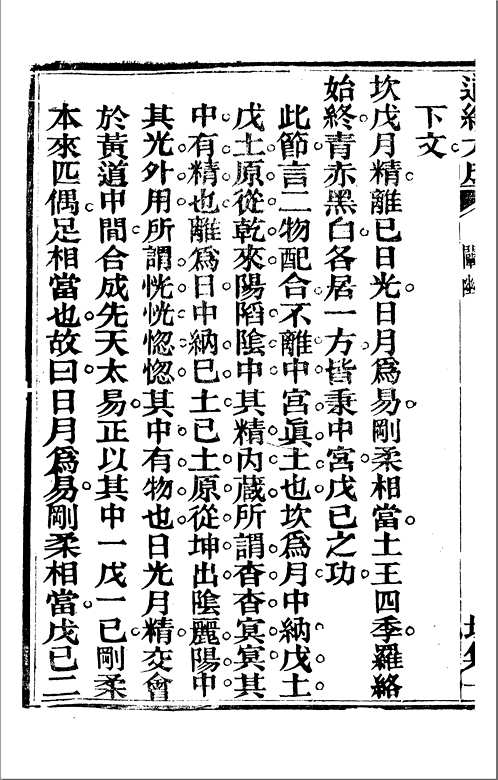 闡幽
下文
坎戊月精離已日光日月爲易剛柔相當土王四季羅絡
始終青赤黑白各居一方皆秉中宮戊已之功
此節言二物配合不離中宮眞土也坎爲月中納戊土
戊土原從乾來陽陷陰中其精內藏所謂杳杳冥冥其
中有精也離爲日中納已土已土原從坤出陰麗陽中
其光外用所謂恍恍惚惚其中有物也日光月精交會
於黃道中間合成先天太易正以其中一戊一已剛柔
本來匹偶足相當也故曰日月爲易剛柔相當戊已二